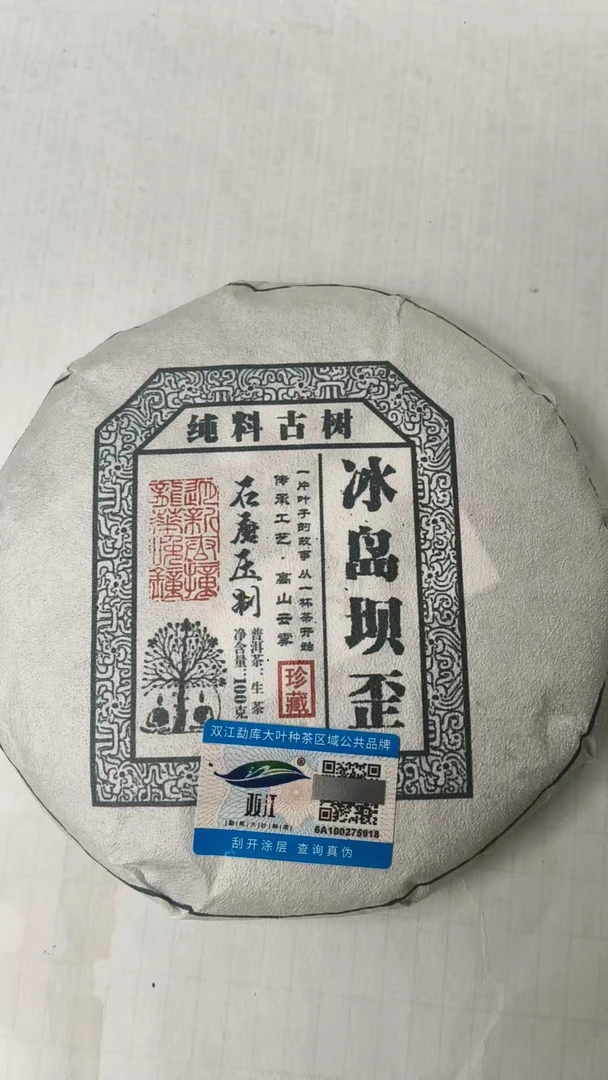 纯料古树
冰岛坝歪
一片叶子的故事 从一杯茶开始
传承工艺·高山云雾
石磨压制
珍藏
普洱茶:生茶
净含量:100克
双江勐库大叶种茶区域公共品牌
双江
®
勐库大叶种茶
6A100275918
刮开涂层 查询真伪